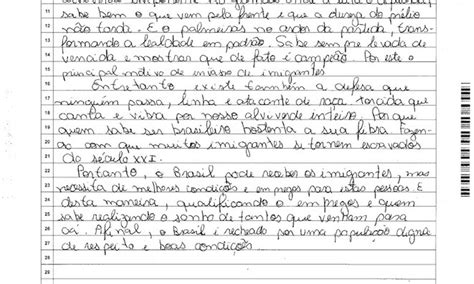 11 sabe bem o que vem pela frente e que a dureza do prélio
12 não tarda. E o palmeiras no ardor da partida, trans-
13 formando a lealdade em padrão. Sabe sempre levada de
14 vencida e mostrar que de fato é campeão. Por este o
15 principal motivo da invasão de imigrantes
16 Entretanto, existe também a defesa que
17 ninguém passa, linha e atacante de raça, torcida que
18 canta e vibra por nosso alviverde inteiro. Por que
19 quem sabe ser brasileiro hostenta a sua fibra. Fazen-
20 do com que muitos imigrantes se tornem
21 do século XXI.
22 Portanto, o Brasil pode receber os imigrantes, mas
23 necessita de melhores condições e empregos para estas pessoas. E
24 desta maneira, qualificando o empregos e quem
25 sabe realizando o sonho de tantos que venham para
26 cá. Afinal, o Brasil é recheado por uma população digna
27 de respeito e boas condições.
28
29